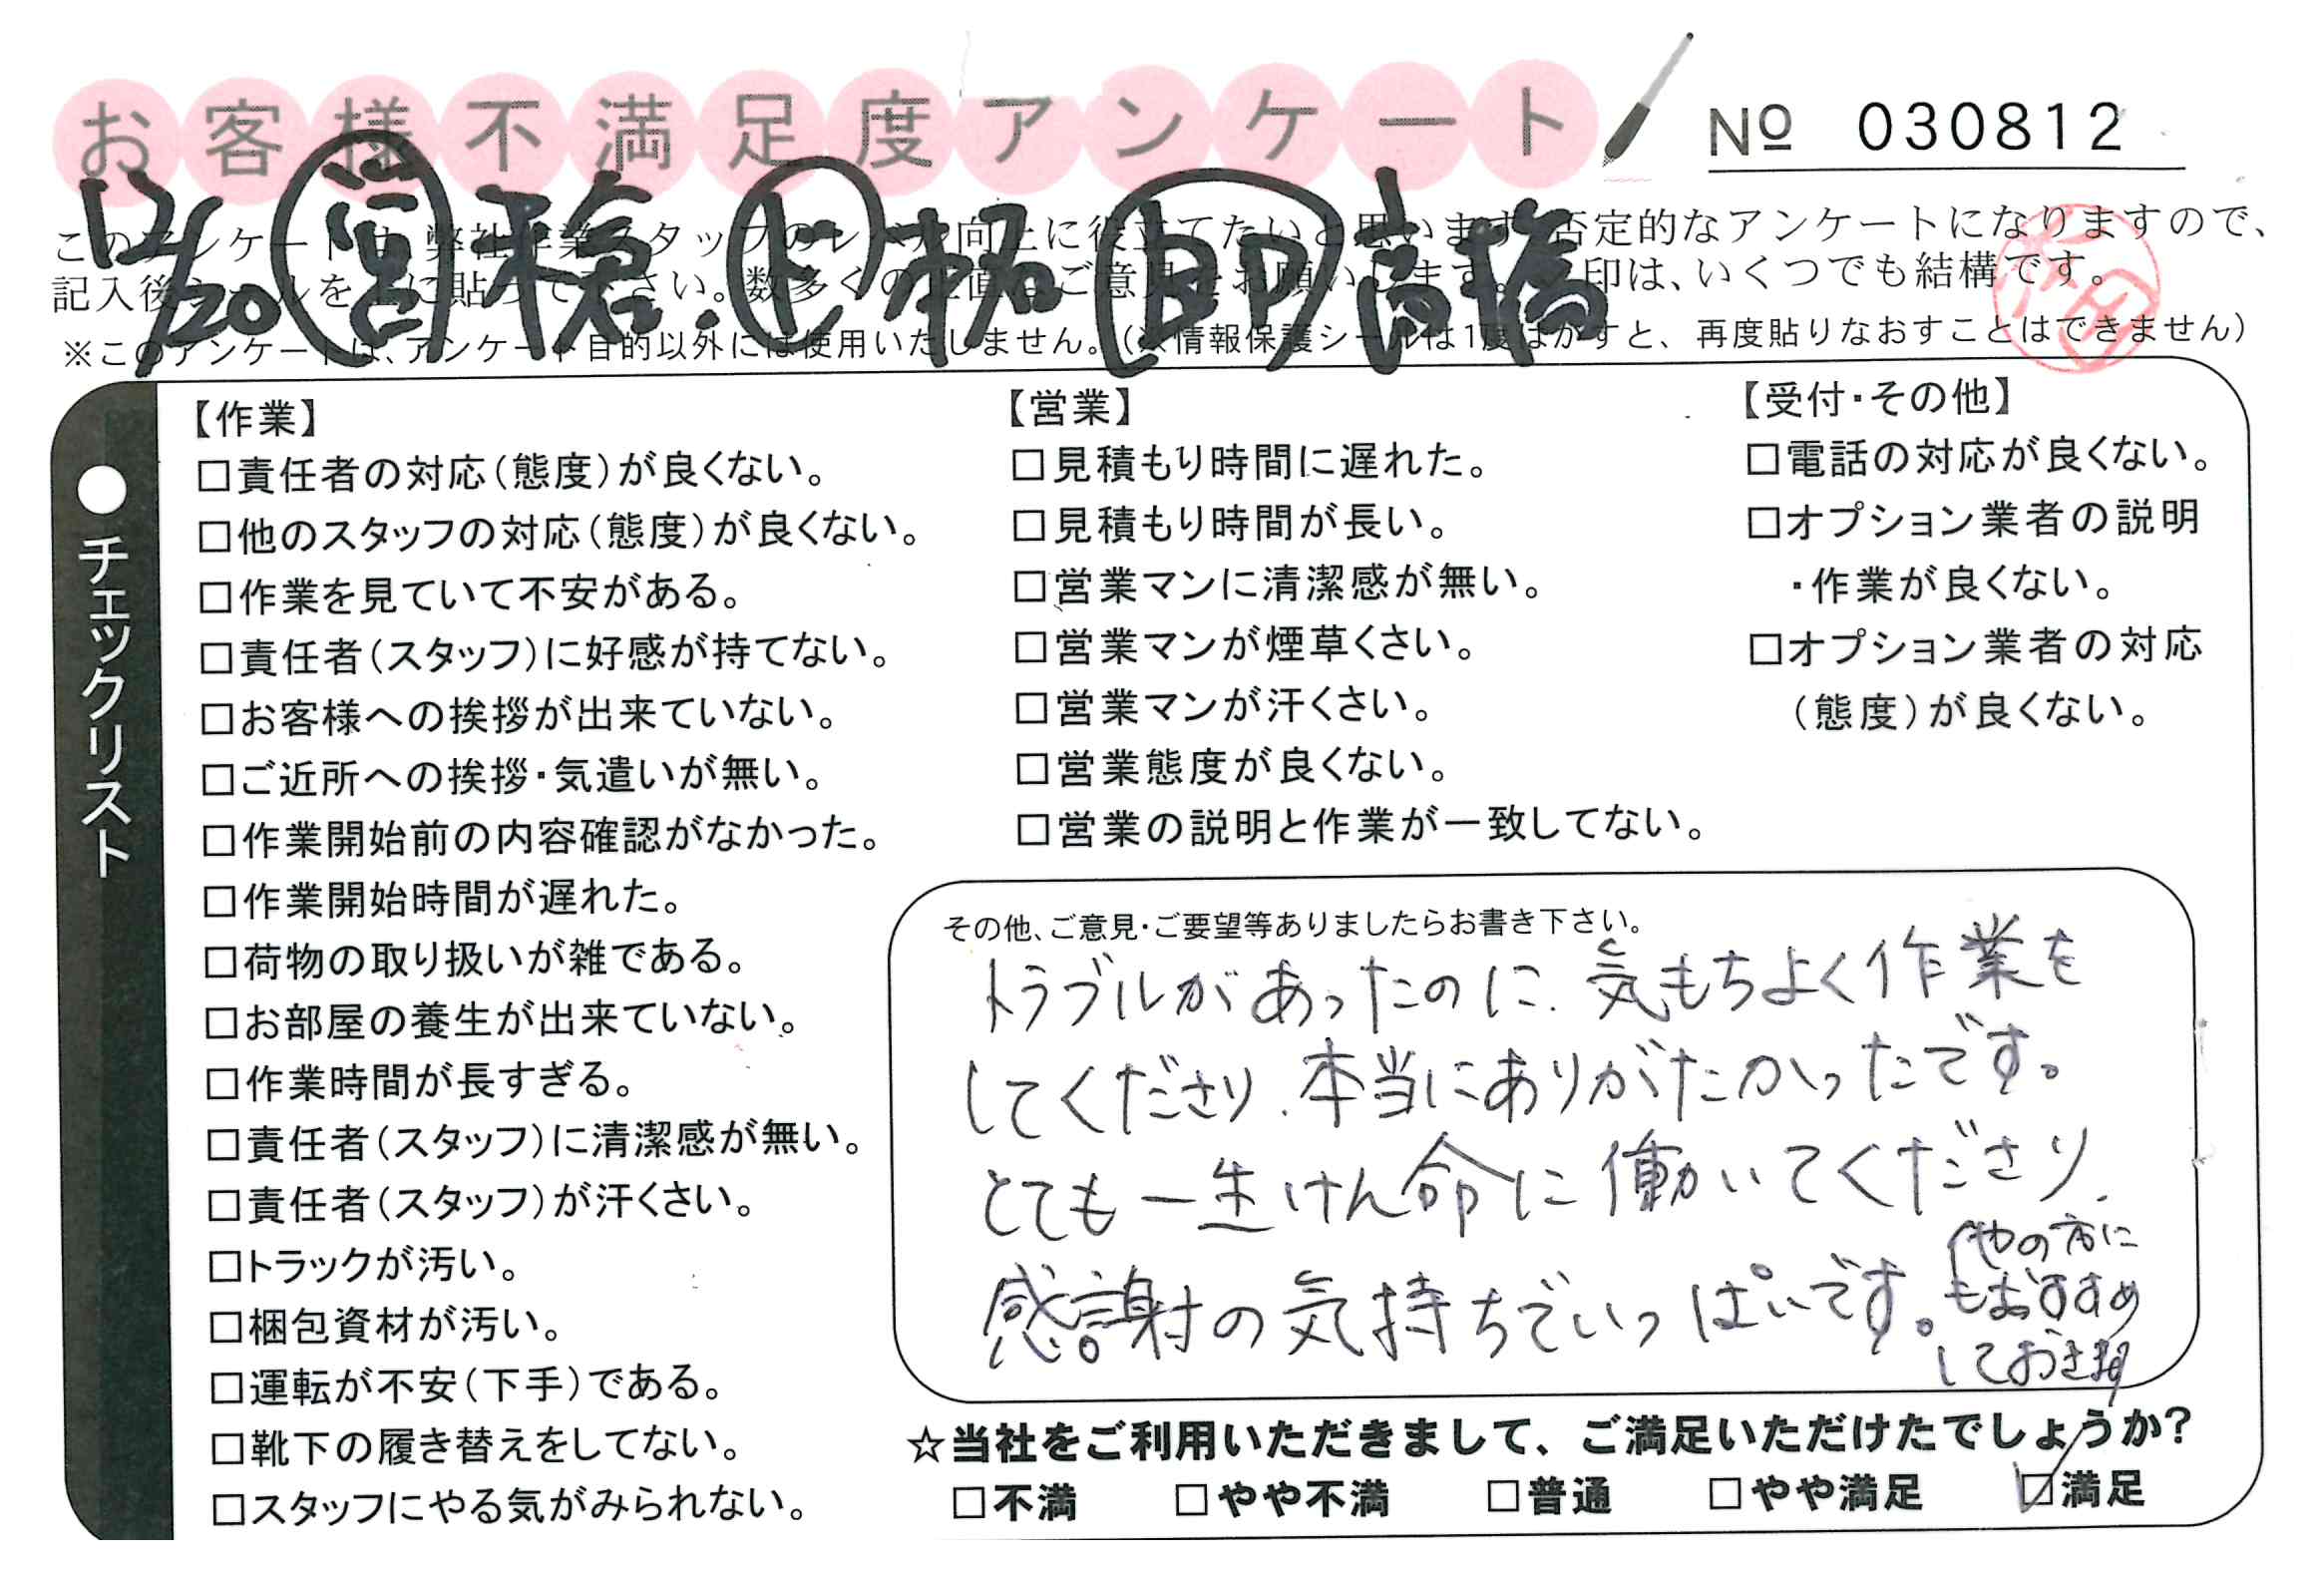 お客様不満足度アンケート
№ 030812
12/20 営 千穐. ド 本名 助 高橋
このアンケートは、弊社作業スタッフのレベル向上に役立てたいと思います。否定的なアンケートになりますので、
記入後シールを上に貼って下さい。数多くの正直なご意見をお願いします。✓印は、いくつでも結構です。
※このアンケートは、アンケート目的以外には使用いたしません。(※情報保護シールは1度はがすと、再度貼りなおすことはできません)
●チェックリスト
【作業】
□責任者の対応(態度)が良くない。
□他のスタッフの対応(態度)が良くない。
□作業を見ていて不安がある。
□責任者(スタッフ)に好感が持てない。
□お客様への挨拶が出来ていない。
□ご近所への挨拶・気遣いが無い。
□作業開始前の内容確認がなかった。
□作業開始時間が遅れた。
□荷物の取り扱いが雑である。
□お部屋の養生が出来ていない。
□作業時間が長すぎる。
□責任者(スタッフ)に清潔感が無い。
□責任者(スタッフ)が汗くさい。
□トラックが汚い。
□梱包資材が汚い。
□運転が不安(下手)である。
□靴下の履き替えをしてない。
□スタッフにやる気がみられない。
【営業】
□見積もり時間に遅れた。
□見積もり時間が長い。
□営業マンに清潔感が無い。
□営業マンが煙草くさい。
□営業マンが汗くさい。
□営業態度が良くない。
□営業の説明と作業が一致してない。
【受付・その他】
□電話の対応が良くない。
□オプション業者の説明
・作業が良くない。
□オプション業者の対応
(態度)が良くない。
その他、ご意見・ご要望等ありましたらお書き下さい。
トラブルがあったのに、気もちよく作業を
してくださり、本当にありがたかったです。
とても一生けん命に働いてくださり、
感謝の気持ちでいっぱいです。
他の方に
もおすすめ
しておきます
☆当社をご利用いただきまして、ご満足いただけたでしょうか?
□不満 □やや不満 □普通 □やや満足 ☑満足